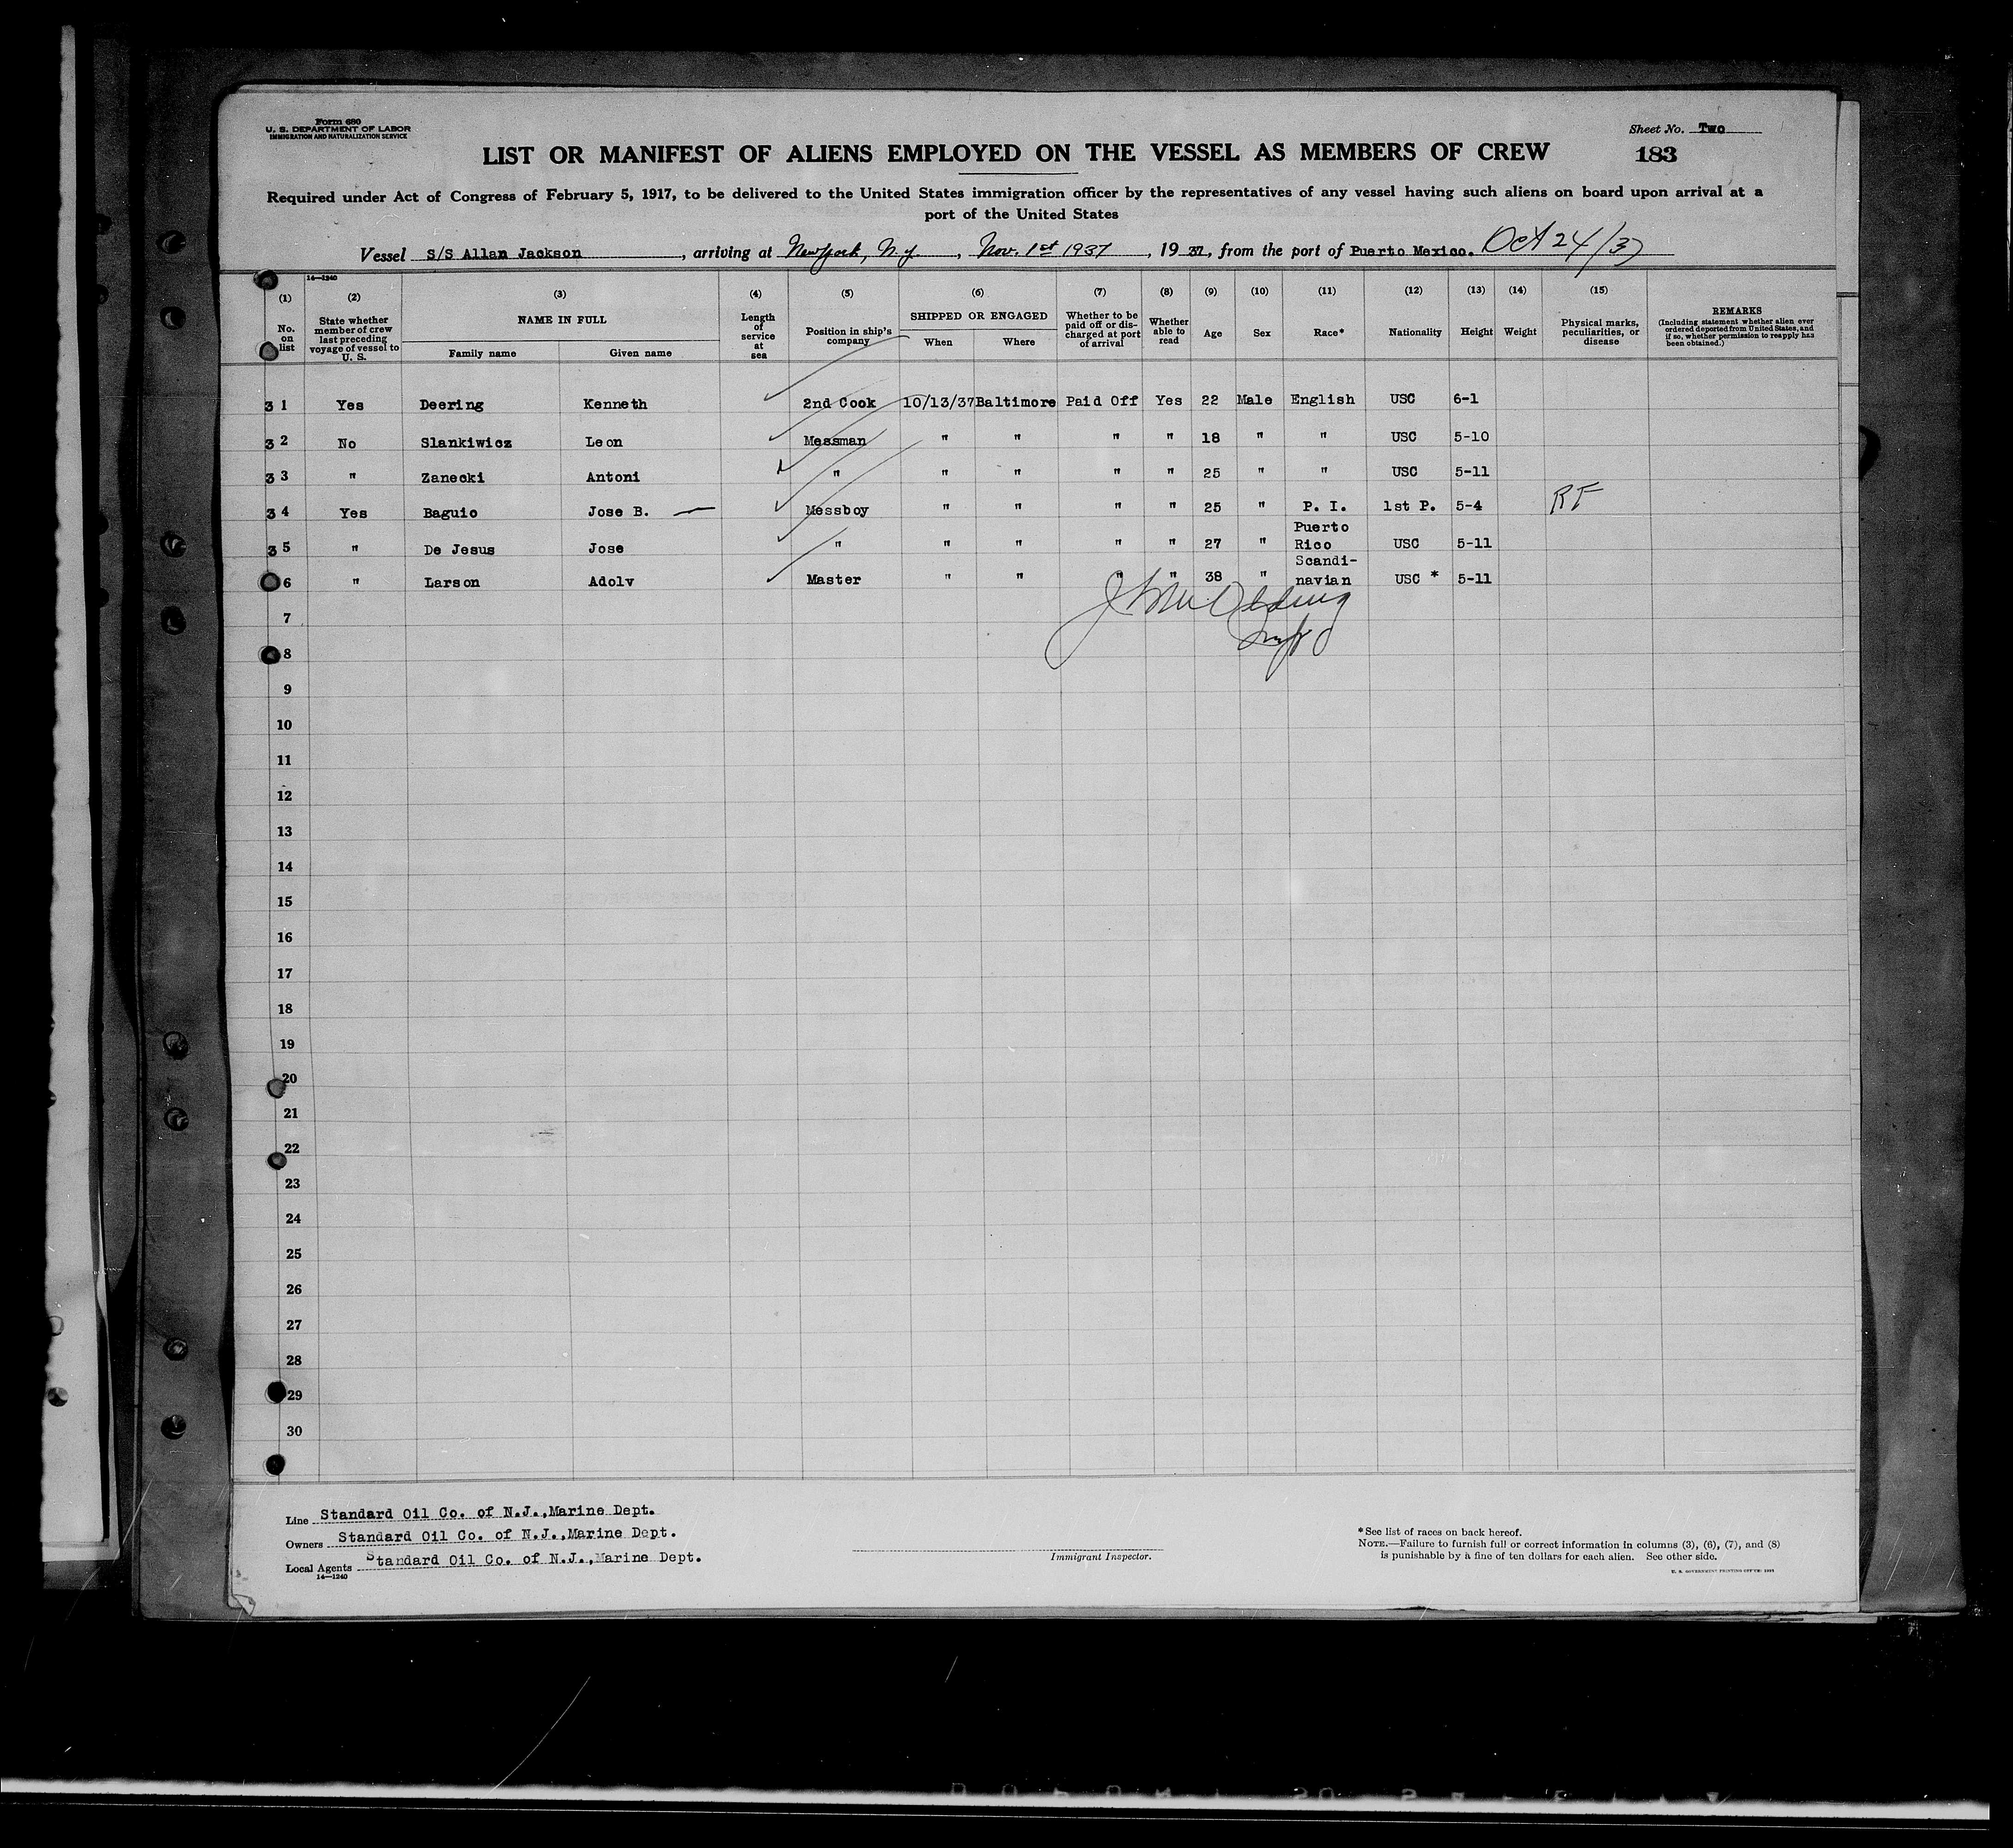 Form 680
U. S. DEPARTMENT OF LABOR
IMMIGRATION AND NATURALIZATION SERVICE
Sheet No. Two
183
LIST OR MANIFEST OF ALIENS EMPLOYED ON THE VESSEL AS MEMBERS OF CREW
Required under Act of Congress of February 5, 1917, to be delivered to the United States immigration officer by the representatives of any vessel having such aliens on board upon arrival at a
port of the United States
Vessel S/S Allan Jackson, arriving at New York, N.Y., Nov. 1st 1937, 19 37, from the port of Puerto Mexico. Oct 24/37
14—1240
(1) (2) (3) (4) (5) (6) (7) (8) (9) (10) (11) (12) (13) (14) (15)
No. on list
State whether member of crew last preceding voyage of vessel to U. S.
NAME IN FULL
Family name Given name
Length of service at sea
Position in ship's company
SHIPPED OR ENGAGED
When Where
Whether to be paid off or discharged at port of arrival
Whether able to read
Age
Sex
Race*
Nationality
Height
Weight
Physical marks, peculiarities, or disease
REMARKS
(Including statement whether alien ever ordered deported from United States, and if so, whether permission to reapply has been obtained.)
3 1 Yes Deering Kenneth 2nd Cook 10/13/37 Baltimore Paid Off Yes 22 Male English USC 6-1
3 2 No Slankiwicz Leon Messman " " " " 18 " " USC 5-10
3 3 " Zanecki Antoni " " " " " 25 " " USC 5-11
3 4 Yes Baguio Jose B. — Messboy " " " " 25 " P. I. 1st P. 5-4 RF
3 5 " De Jesus Jose " " " " " 27 " Puerto Rico USC 5-11
6 " Larson Adolv Master " " " " 38 " Scandi-navian USC * 5-11
7
8
9
10
11
12
13
14
15
16
17
18
19
20
21
22
23
24
25
26
27
28
29
30
Line Standard Oil Co. of N.J.,Marine Dept.
Owners Standard Oil Co. of N.J.,Marine Dept.
Local Agents Standard Oil Co. of N.J.,Marine Dept.
14—1240
Immigrant Inspector.
*See list of races on back hereof.
NOTE.—Failure to furnish full or correct information in columns (3), (6), (7), and (8)
is punishable by a fine of ten dollars for each alien. See other side.